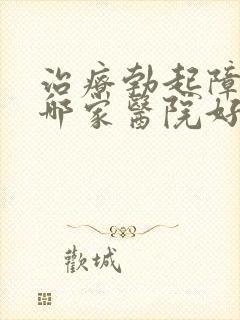 治療勃起障
哪家醫院好
歡城